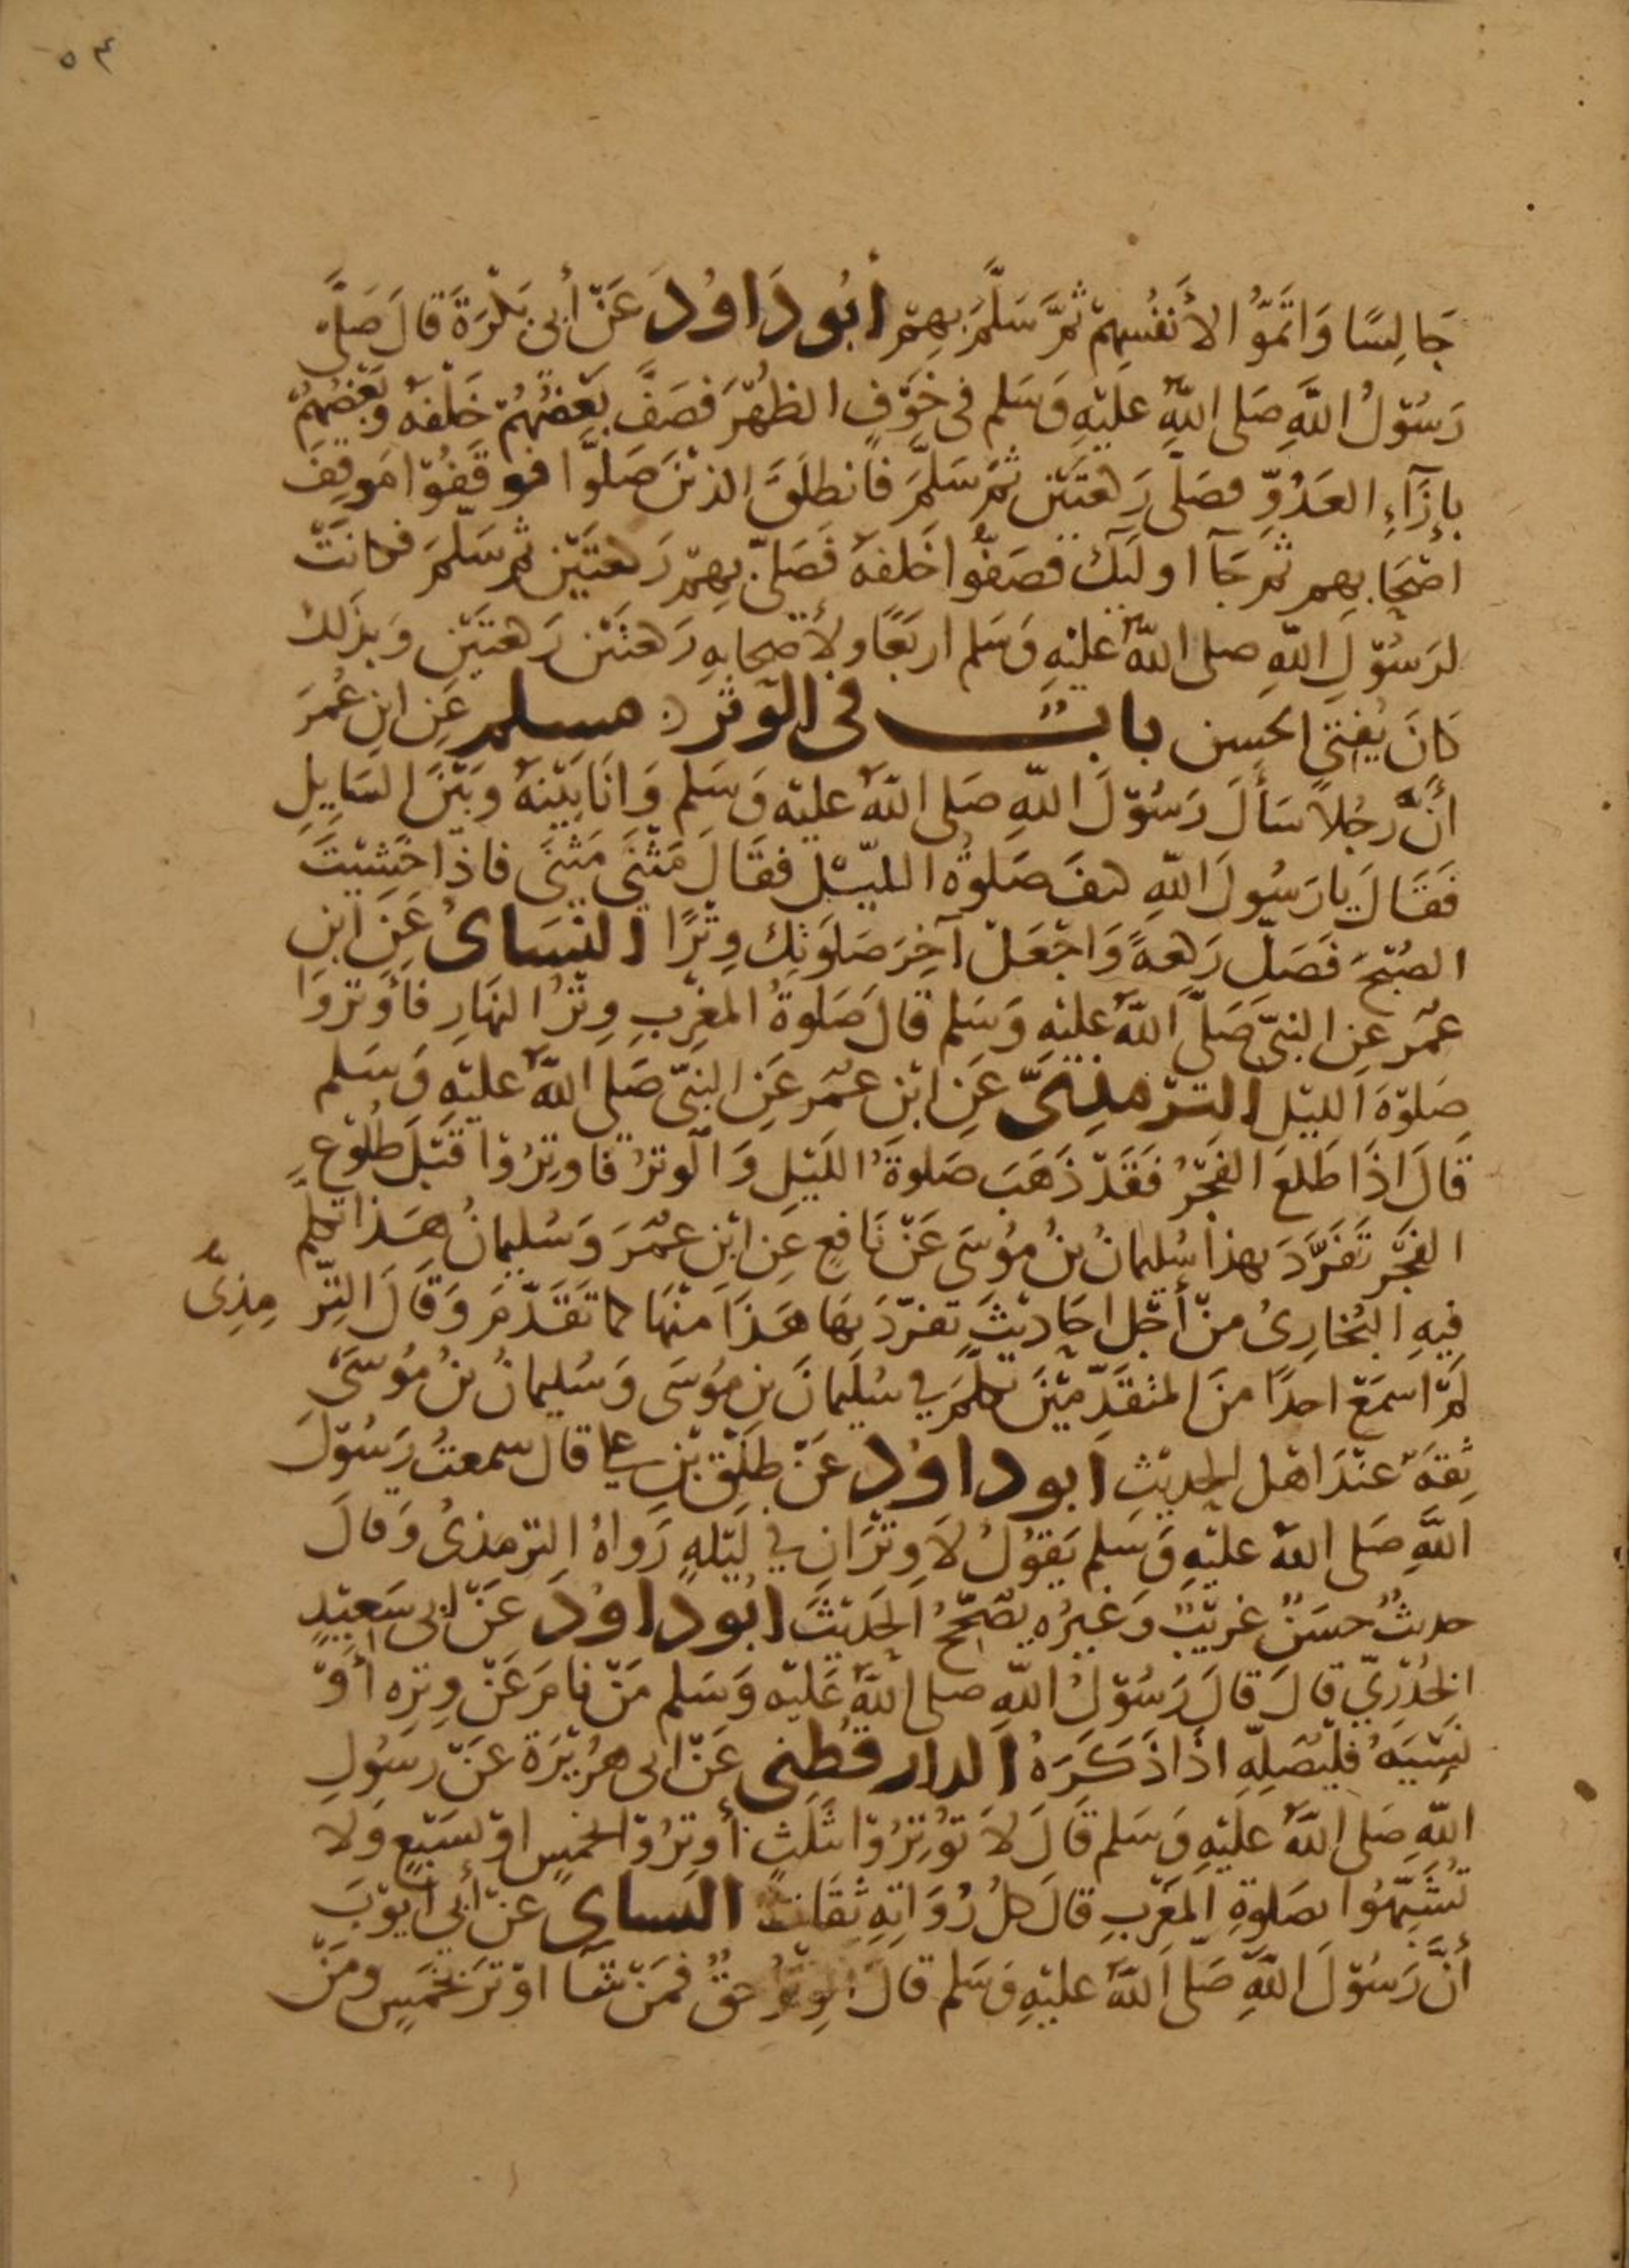 ٥٤
جَالِسًا وَاتَمَّوُا لأَنفُسِهِمْ ثُمَّ سَلَّمَ بِهِمْ أبُو دَاوُدَ عَنْ أبِى بَكْرَةَ قَالَ صَلَّى
رَسُوْلُ اللَّهِ صَلى اللَّهُ عَليْهِ وَسَلم فى خَوْفٍ الظُهْرَ فَصَفَّ بَعْضُهُمْ خَلْفَهُ وَبَعْضُهُمْ
بِإزَآءِ العَدُوِّ فصَلَّى رَكعتَيْن ثُمَّ سَلَّمَ فَانطَلَقَ الذيْنَ صَلَّوْا فوقَفُوْا مَوقِفَ
اصْحَابِهِم ثُمَّ جَآ اولَيِكَ فصَفُّوا خَلفَهُ فَصَلّى بِهِمْ رَكعتَيْنِ ثُمَّ سَلَّمَ فكانَتْ
لرَسُوْلِ اللّهِ صلى اللَّهُ عليْهِ وَسَلم اربَعًا ولأصْحابِهِ رَكعتَيْن رَكعتَيْنِ وَبِذَلك
كَانَ يُفتى الحَسِن بابٌ فى الوَتْر مسلم عَنِ ابنِ عُمَرَ
أَنَّ رجُلاً سَأَلَ رَسُوْلَ اللّهِ صَلى اللَّهُ عليْه وَسَلم وَانَا بَيْنَهُ وَبَيْنَ السَايِلِ
فَقَالَ يا رَسُولَ اللّهِ كيفَ صَلوةُ الليْلِ فقَالَ مَثْنَى مَثْنَى فاذا خَشِيْتَ
الصُبْحَ فَصَلِّ رَكعةً وَاجْعَلْ آخِرَ صَلوَتِكَ وِتْرًا النسَائىُ عَنِ ابْنِ
عُمَر عنِ النبىِّ صَلّى اللَّهُ عليْهِ وَسَلم قالَ صَلوةُ المَغْرِبِ وِتْرُ النهَارِ فأوترُوا
صَلوةَ الليْلِ التِرْمِذِىُّ عَنِ ابْنِ عُمَرَ عَنِ النبىّ صَلى اللَّهُ عليْهِ وَسَلم
قالَ اذَا طَلعَ الفَجْرُ فَقَدْ ذَهَبَ صَلوةُ اللَيْلِ وَالوَترُ فاوتِرُوْا قَبْلَ طُلوْعِ
الفَجْرِ تَفَرَّدَ بهذا سُليمانُ بنُ مُوْسَى عَنْ نَافعٍ عَنِ ابْنِ عُمَرَ وَسُليمانُ هَذا تكلَّمَ
فِيهِ البُخَارِىُ منْ أجْلِ احَاديْثَ تفرّدَ بهَا هَذَا مِنْهَا كما تَقَدَّمَ وَقَالَ التِرْمِذِىُّ
لَمْ اسمَعْ احدًا منَ المتقَدّمِيْنَ تكلَّمَ في سُليمانَ بنِ مُوسَى وَسُليمانُ بْنُ مُوْسَى
ثِقَةٌ عنْدَ اهْل الحديْثِ ابو داوُد عَنْ طَلْقِ بْنِ على قال سمعتُ رَسُوْلَ
اللَّهِ صَلى اللهُ عليْهِ وَسَلم يَقوْلُ لاَ وِتْرَانِ في لَيْلَةٍ رَواهُ الترمذىُ وَقالَ
حديثٌ حسَنٌ غريْبٌ وَغيرُه يصَحّحُ الحَديْثَ ابُو دَاوُدَ عَنْ ابى سَعِيْدٍ
الخُدْرِيّ قالَ قالَ رَسُوْلُ اللّهِ صلى اللَّهُ عَليْه وَسَلم مَنْ نامَ عَنْ وِترِه أوْ
نَسِيَهُ فليُصَلِّهِ اذَا ذَكَرَهُ الدارقُطِنى عَنْ ابى هُرَيْرَة عَنْ رسُولِ
اللّهِ صَلى اللَّهُ عليْهِ وَسَلم قالَ لاَ تُوْتِرُوْا بثَلثٍ أوتِرُوْا بخمسٍ اوْ بسَبْعٍ وَلا
تُشَبِّهُوا بصَلوةِ المغْرِبِ قالَ كلُ رُوَاتِهِ ثِقَاتٌ النساىُ عَنْ أبِى أيُوْبَ
أنَّ رَسُوْلَ اللَّهِ صَلّى اللَّهُ عليْهِ وَسَلم قالَ الوِتْرُ حقٌ فَمَنْ شَآ اوْترَ بخَمسٍ ومَنْ